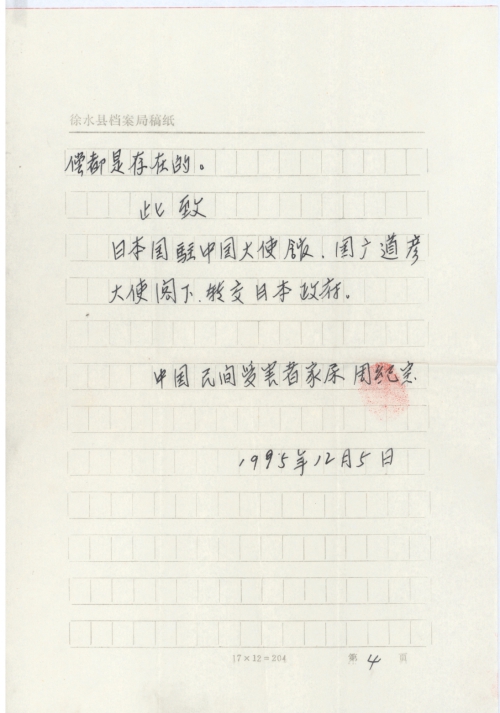 徐水县档案局稿纸
偿都是存在的。
此致
日本国驻中国大使馆、国广道彦
大使阁下、转交日本政府。
中国民间受害者家属 周纪宗
1995年12月5日
17×12=204
第4页